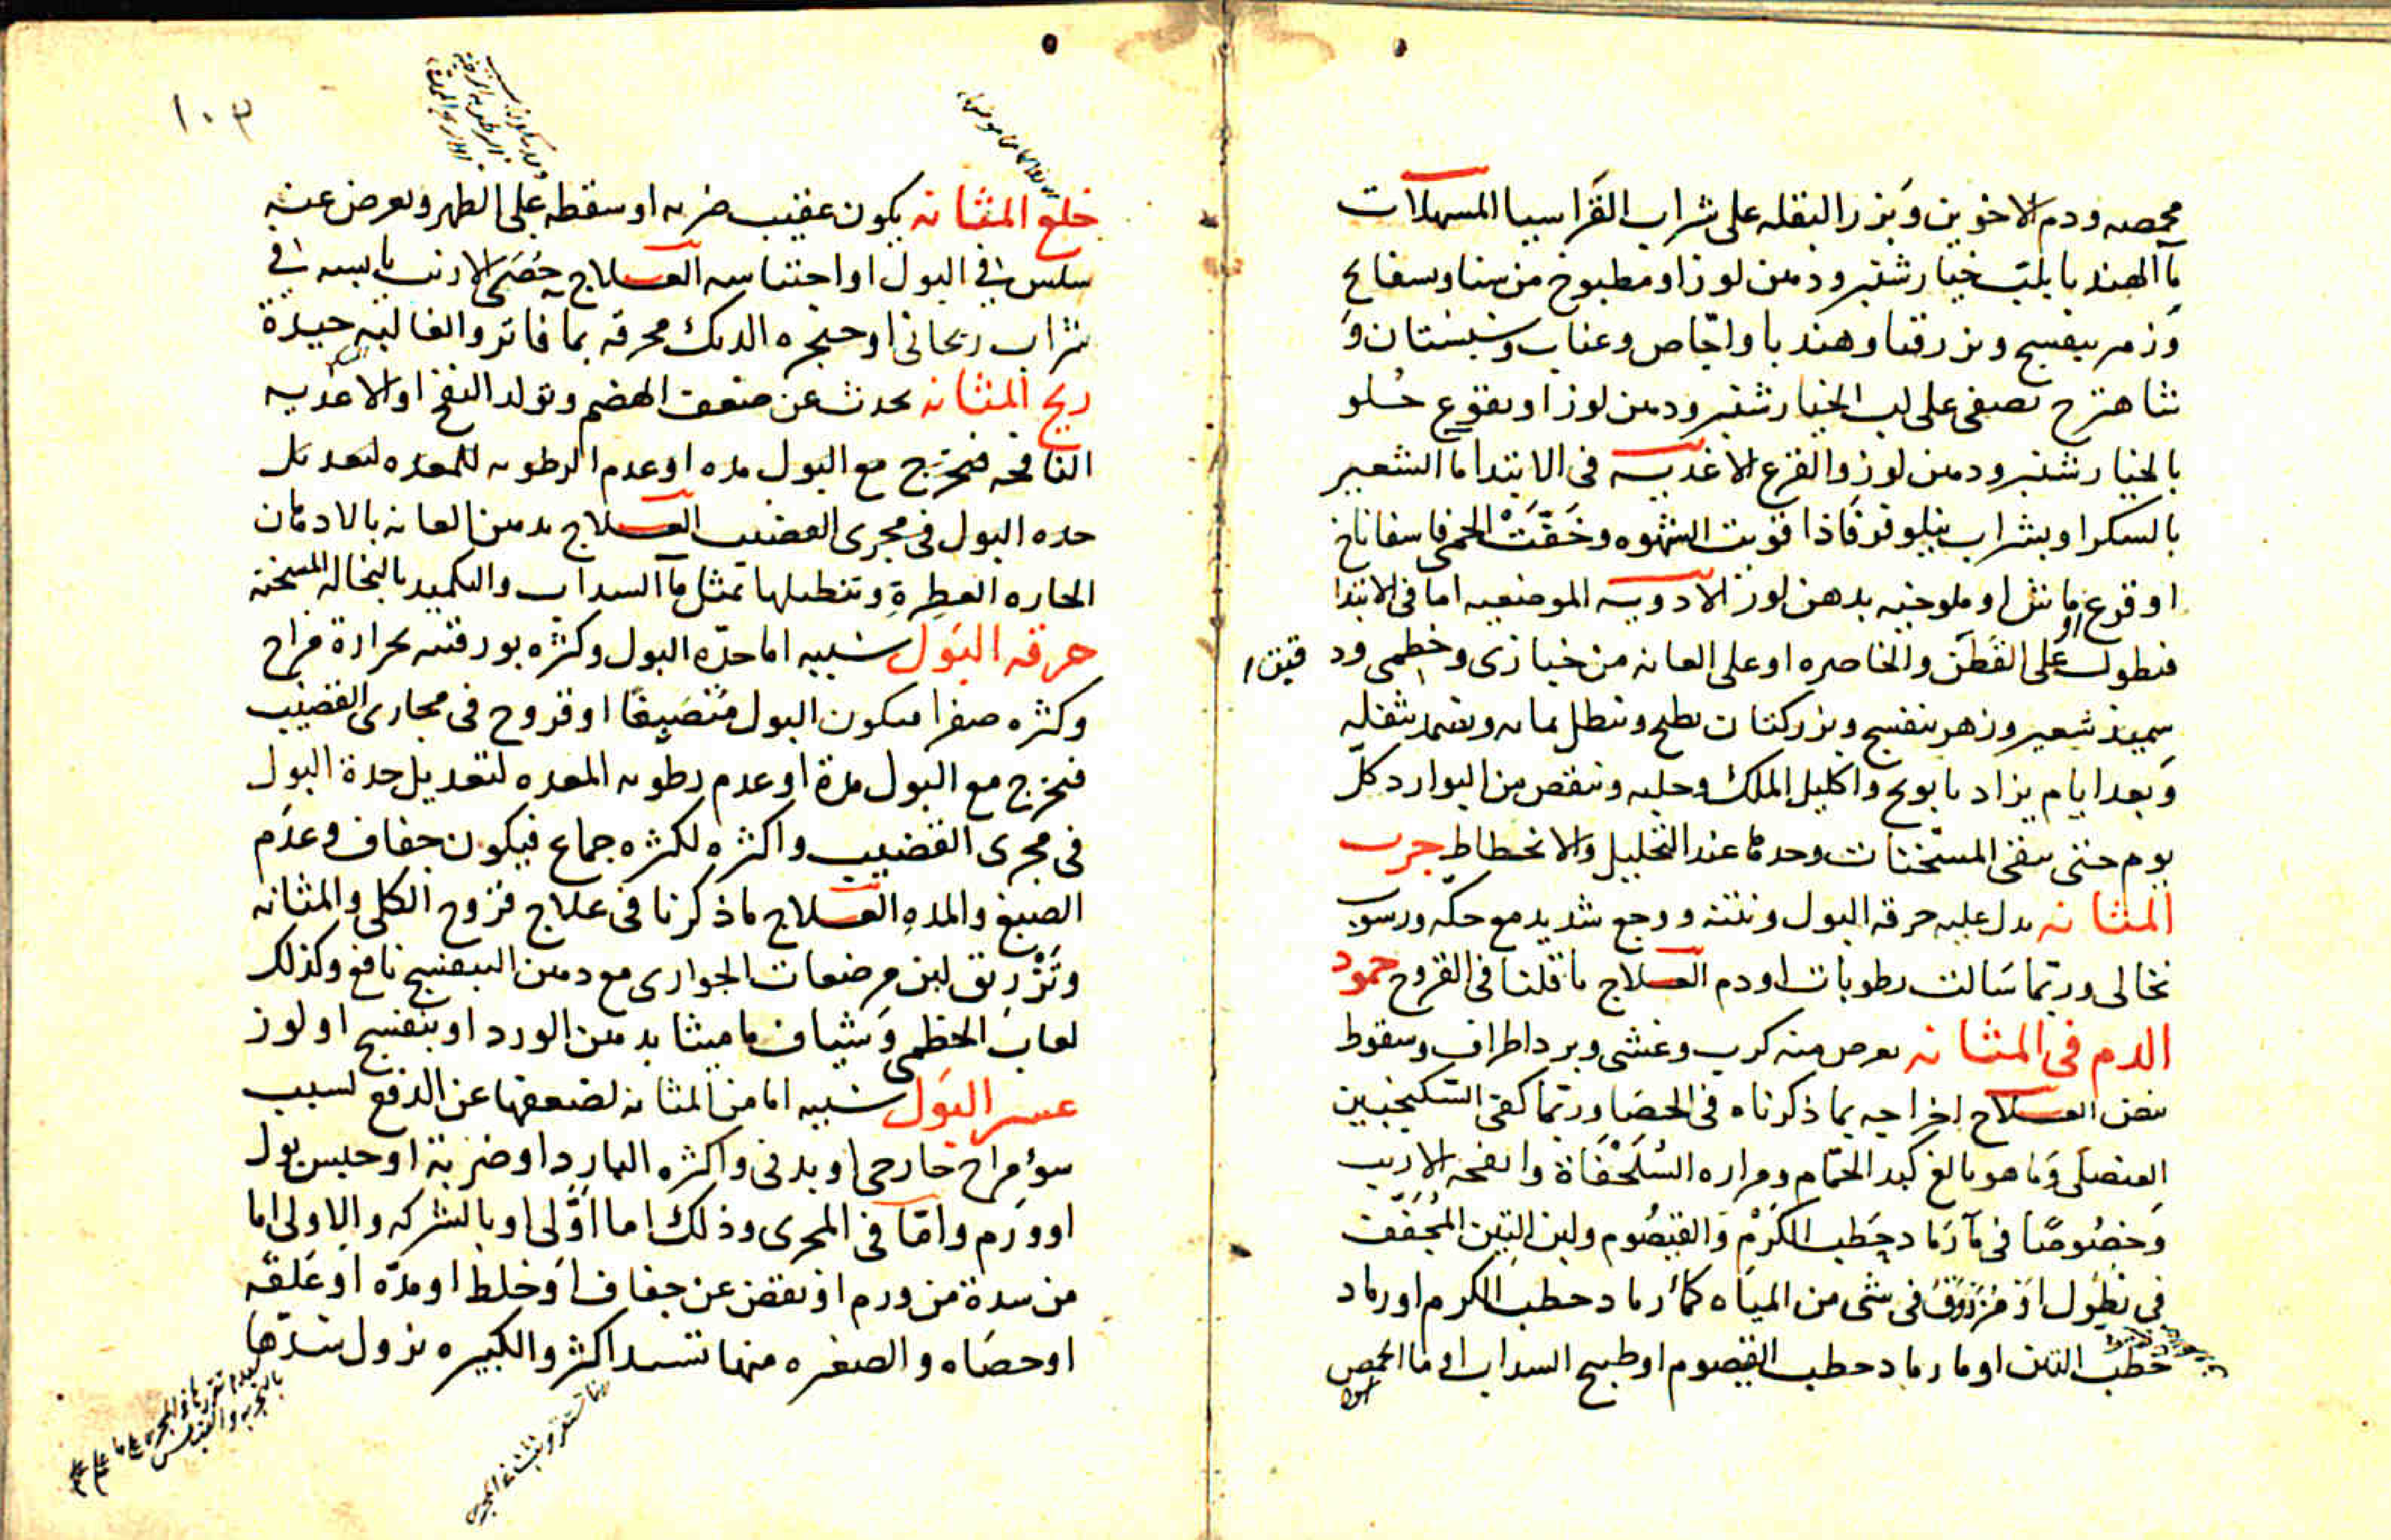 محمصه ودم الاخوين وبزر البقله على شراب القراسيا المسهلات
مآ الهندبا بلب خيارشنبر ودهن لوز او مطبوخ من سنا وبسفايج
وزهر بنفسج وبزر قثا وهندبا واجاص وعناب وسبستان و
شاهترج يصفى على لب الخيارشنبر ودهن لوز او نقوع حلو
بالخيارشنبر ودهن لوز والقزع الاغذيه فى الابتدا ما الشعير
بالسكر او بشراب نيلوفر فاذا قويت الشهوه وخفت الحمى فاسفاناخ
او قرع او ماش او ملوخيه بدهن لوز الادويه الموضعيه اما فى الابتدا
فنطول على القطن والخاصره او على العانه من خبازى وخطمى ود قيق
سميذ شعير وزهر بنفسج وبزر كتان يطبخ وينطل بمائه ويضمد بثفله
وبعد ايام يزاد بابونج واكليل الملك وحلبه وينقص من البوارد كل
يوم حتى يبقى المسخنات وحدها عند التحليل والانحطاط جرب
المثانه يدل عليه حرقه البول ونتنه ووجع شديد مع حكه ورسوب
نخالى وربما سالت رطوبات او دم العلاج ما قلنا فى القروح جمود
الدم فى المثانه يعرض منه كرب وغشى وبرد اطراف وسقوط
نبض العلاج اخراجه بما ذكرناه فى الحصا وربما كفى السكنجبين
العنصلى وما هو بالغ كبد الحمام ومراره السلحفاة وانفحه الارنب
وخصوصا فى مآ رماد حطب الكرم والقيصوم ولبن التين المجفف
فى نطول او مزروق فى شى من المياه كمآ رماد حطب الكرم او رماد
حطب التين او ما رماد حطب القيصوم او طبيخ السداب فى ما الحمص
اسود
١٠٣
خلع المثانه يكون عقيب ضربه او سقطه على الظهر ويعرض عنه
سلس فى البول او احتباسه العلاج خصى الارنب يابسه فى
شراب ريحانى او حنجره الديك محرقه بما فاتر والغاليه جيدة
ريح المثانه يحدث عن ضعف الهضم وتولد النفخ او الاغذيه
النافخه فتخرج مع البول مده او عدم الرطوبه للمعده لتعديل
حده البول فى مجرى القضيب العلاج يدهن العانه بالادهان
الحاره العطرة وتنطيلها بمثل مآ السداب والتكميد بالنخاله المسخنه
حرقه البول سببه اما حده البول وكثره بورقيته لحرارة مزاج
وكثره صفرا فيكون البول منصبغا او قروح فى مجارى القضيب
فتخرج مع البول مدة او عدم رطوبه المعده لتعديل حدة البول
فى مجرى القضيب واكثره لكثره جماع فيكون جفاف وعدم
الصبغ والمده العلاج ما ذكرنا فى علاج قروح الكلى والمثانه
وتزريق لبن مرضعات الجوارى مع دهن البنفسج نافع وكذلك
لعاب الخطمى وشياف ماميثا بدهن الورد او بنفسج او لوز
عسر البول سببه اما من المثانه لضعفها عن الدفع لسبب
سؤ مزاج خارجى او بدنى واكثره البارد او ضربة او حبس بول
او ورم واما فى المجرى وذلك اما اولى او بالشركه والاولى اما
من سدة من ورم او تقبض عن جفاف او خلط او مده او علقه
او حصاه والصغيره منها تسد اكثر والكبيره يزول سدها